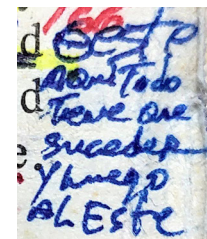 d OESTE
d AQUÍ TODO
TIENE QUE
e. SUCEDER
Y LUEGO
AL ESTE